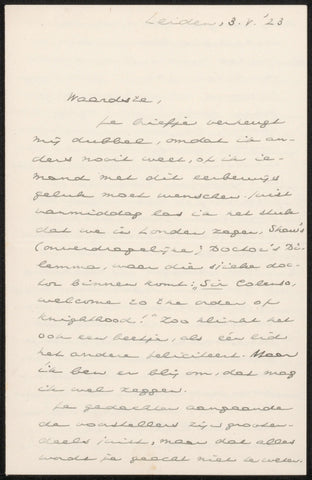 Leiden, 3.V.'23
Waardste,
Je briefje verheugt
mij dubbel, omdat ik an-
ders nooit weet, of ik ie-
mand met dit eerbewijs
geluk moet wenschen. Juist
vanmiddag las ik het stuk
dat we in Londen zagen, Shaw's
(onverdragelijke) Doctor's Di-
lemma, waar die sieke doc-
tor binnen komt: "Sir Colenso,
welcome to the order of
Knighthood!" Zoo klinkt het
ook een beetje, als één lid
het andere feliciteert. Maar
ik ben er blij om, dat mag
ik wel zeggen.
Je gedachten aangaande
de voorstellers zijn grooten-
deels juist, maar dat alles
wordt je geacht niet te weten.